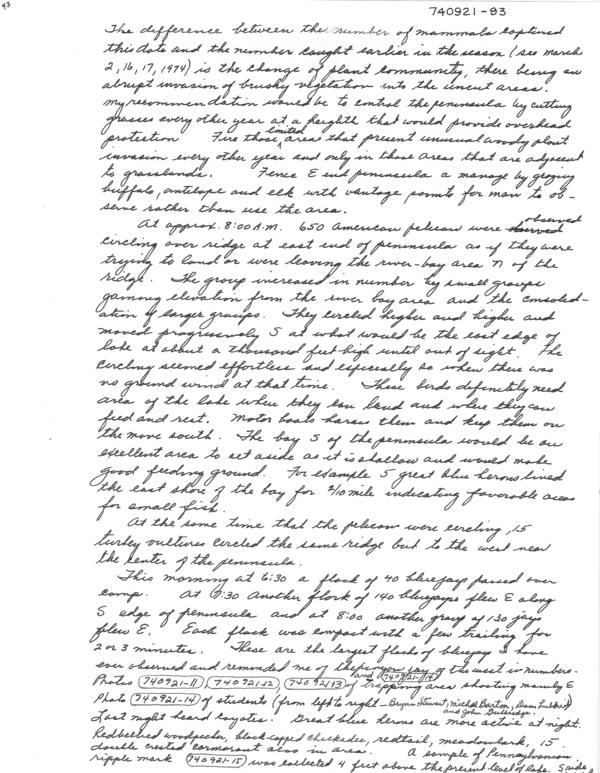 93
740921-93
The difference between the number of mammals captured
this date and the number caught earlier in the season (see March
2, 16, 17, 1974) is the change of plant community, there being an
abrupt invasion of brushy vegetation into the uncut areas.
My recommendation would be to control the peninsula by cutting
grasses every other year at a heighth that would provide overhead
protection Fire those limited areas that present unusual woody plant
invasion every other year and only in those areas that are adjacent
to grasslands. Fence E end peninsula a manage by grazing
buffalo, antelope and elk with vantage points for man to ob-
serve rather than use the area.
At approx. 8:00 A.M. 650 American pelican were observed
circling over ridge at east end of peninsula as if they were
trying to land or were leaving the river-bay area N of the
ridge. The group increased in number by small groups
gaining elevation from the river bay area and the consolid-
ation of larger groups. They circled higher and higher and
moved progressively S at what would be the east edge of
lake at about a thousand feet high until out of sight. The
circling seemed effortless and especially so when there was
no ground wind at that time. These birds definitely need
area of the lake where they can land and where they can
feed and rest. Motor boats harass them and keep them on
the move south. The bay S of the peninsula would be an
excellent area to set aside as it is shallow and would make
good feeding ground. For example 5 great blue herons lined
the east shore of the bay for 2/10 mile indicating favorable areas
for small fish.
At the same time that the pelican were circling, 15
turkey vultures circled the same ridge but to the west near
the center of the peninsula.
This morning at 6:30 a flock of 40 bluejays passed over
camp. At 7:30 another flock of 140 bluejays flew E along
S edge of peninsula and at 8:00 another group of 130 jays
flew E. Each flock was compact with a few trailing for
2 or 3 minutes. These are the largest flocks of bluejays I have
ever observed and reminded me of the pinyon jay of the west in numbers.
Photos (740921-11), (740921-12), (740921-13) and (740921-14) of trapping area shooting mainly E
Photo (740921-14) of students (from left to right - Bryon Stewart, Michel Barton, Dan
and John
Last night heard coyotes. Great blue herons are more active at night.
Redbellied woodpecker, black-capped chickadee, redtail, meadowlark, 15
double crested cormorant also in area. A sample of Pennsylvanian
ripple mark (740921-15) was collected 4 feet above the present level of lake. S side